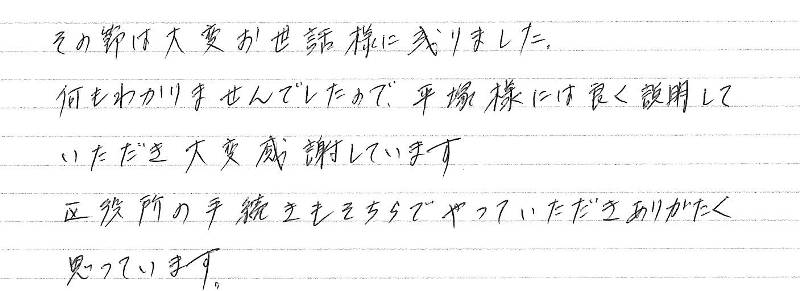 その節は大変お世話様に成りました。
何もわかりませんでしたので、平塚様には良く説明して
いただき大変感謝しています
区役所の手続きもそちらでやっていただきありがたく
思っています。